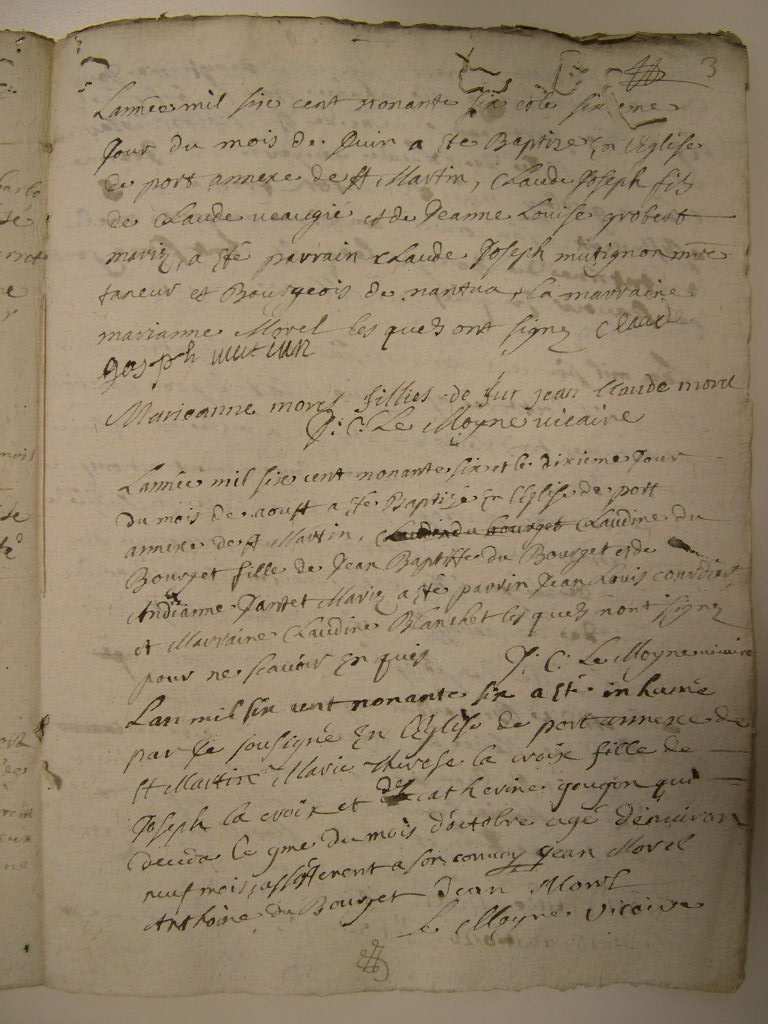 3
Lannée mil six cent nonante six et le sixieme
Jour du mois de Juin a été Baptize en l'Eglise
de port annexe de st Martin, Claude Joseph fils
de Claude et de Jeanne Louise grobert
mariez, a été parrain Claude Joseph mutignon mtre
taneur et Bourgeois de nantua, la marraine
marianne Morel lesquels ont signez Claude
Joseph
Marieanne morel fillies de fut jean Claude morel
J: C: Le Moyne vicaire
Lannée mil six cent nonante six et le dixieme Jour
du mois de aoust a été Baptizé en l'Eglise de port
annexe de st Martin, Claudine du
Bourget fille de Jean Baptiste du Bourget et de
Andrianne Jantet Mariez a été parrin Jean louis
et Marraine Claudine Blanchet lesquels nont signez
pour ne scavoir Enquis J: C: Le Moyne vicaire
Lan mil six cent nonante six a été inhumé
par Je sousigné En l'Eglise de port annexe de
st Martin Marie therese la croix fille de
Joseph la croix et de catherine goujon qui
deceda le 9me du mois d'octobre agé d'enuiron
neuf mois, assisterent a son convoy Jean Morel
Anthoine du Bourget Jean Morel
Le Moyne Vicaire